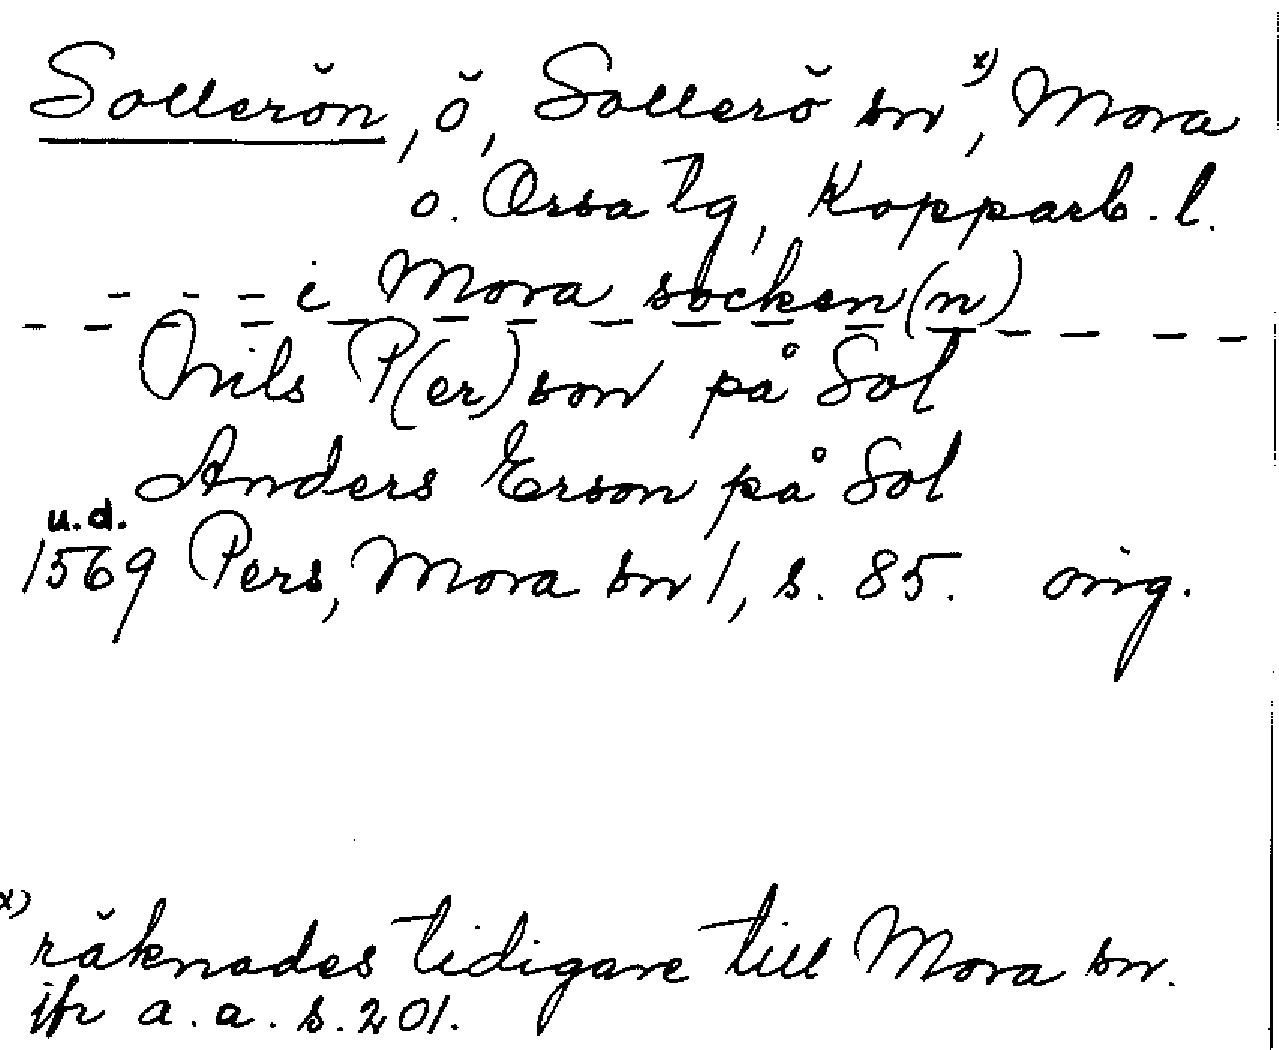 Sollerön, ö, Sollerö sn x), Mora
o. Orsa tg, Kopparb. l.
- - - i Mora socken(n)
- - - - - - - - - - - - - - - -
Nils P(er)son på Sol
Anders Erson på Sol
u.d.
1569 Pers, Mora sn 1, s. 85. orig.
x)
räknades tidigare till Mora sn.
jfr a.a. s. 201.